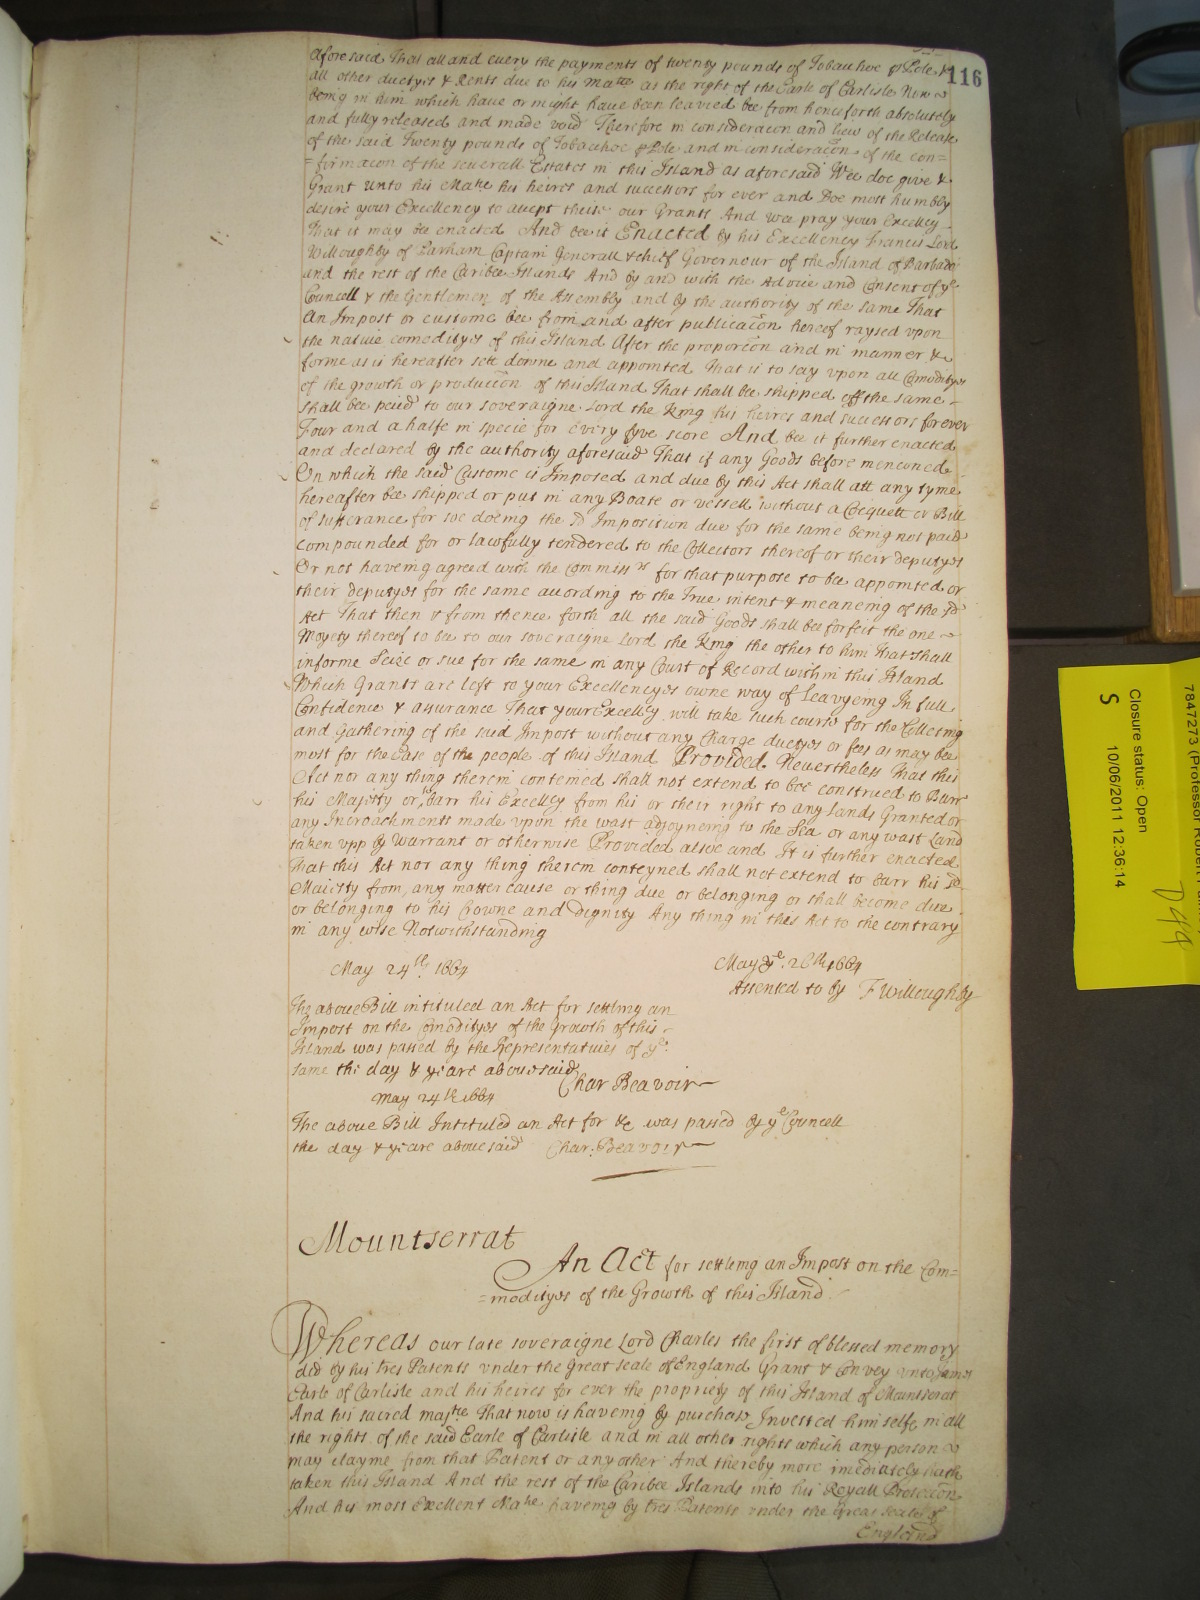 116
aforesaid That all and every the payments of twenty pounds of Tobacchoe p Pole &
all other dutyes & Rents due to his Matie as the right of the Earle of Carlisle Now
being in him which have or might have been leavied bee from henceforth absolutely
and fully released and made void Therefore in consideracon and liew of the Release
of the said Twenty pounds of Tobacchoe p Pole and in consideracon of the con=
=firmacon of the severall Estates in this Island as aforesaid Wee doe give &
Grant unto his Matie his heires and successors for ever and Doe most humbly
desire your Excellency to accept these our Grants And wee pray your Excellcy
That it may be enacted And bee it Enacted by his Excellency Francis Lord
Willoughby of Parham Captain Generall & chief Governour of the Island of Barbados
and the rest of the Caribee Islands And by and with the Advice and Consent of ye
Councell & the Gentlemen of the Assembly and by the authority of the same That
An Impost or custome bee from and after publicacon hereof raysed upon
the native comodityes of this Island After the proporcon and in manner &
forme as is hereafter sett downe and appointed That is to say upon all Comodityes
of the growth or produccon of this Island That shall bee shipped off the same
shall bee paid to our soveraigne Lord the King his heires and successors for ever
Four and a halfe in specie for every fyve score And bee it further enacted
and declared by the authority aforesaid That if any Goods before mencioned
On which the said Custome is Imposed and due by this Act shall att any tyme
hereafter bee shipped or put in any Boate or vessell without a Cocquett or Bill
of sufferance for soe doeing the sd Imposition due for the same being not paid
compounded for or lawfully tendered to the Collectors thereof or their deputyes
Or not haveing agreed with the Commissrs for that purpose to bee appointed or
their deputyes for the same according to the True intent & meaneing of the sd
Act That then & from thence forth all the said Goods shall bee forfeit the one
Moyety thereof to bee to our soveraigne Lord the King the other to him that shall
informe Seize or sue for the same in any Court of Record within this Island
Which Grants are left to your Excellencyes owne way of Leavyeing In full
Confidence & assurance That your Excellcy will take such course for the Collecting
and Gathering of the said Impost without any Charge dutyes or fees as may bee
most for the ease of the people of this Island Provided Nevertheless That this
Act nor any thing therein conteined shall not extend to bee construed to Barr
his Majesty or barr his Excellcy from his or their right to any Lands Granted or
any Incroachments made upon the wast adjoyneing to the Sea or any wast Land
taken upp by warrant or otherwise Provided alsoe and It is further enacted
That this Act nor any thing therein conteyned shall not extend to barr his sd
Majesty from any matter cause or thing due or belonging or shall become due
or belonging to his Crowne and Dignity Any thing in this Act to the contrary
in any wise Notwithstanding
May 24th 1664
May ye: 26th 1664
Assented to by F Willoughby
The above Bill intituled an Act for settling an
Impost on the Comodityes of the Growth of this
Island was passed by the Representatives of ye:
same the day & yeare abovesaid
Char Beavoir
May 24th 1664
The above Bill Intituled an Act for &c was passed by ye Councell
the day & yeare abovesaid Char: Beavoir
Mountserrat
An Act for settleing an Impost on the Com=
=modityes of the Growth of this Island
Whereas our late soveraigne Lord Charles the first of blessed memory
did by his tres Patents under the Great seale of England Grant & convey unto James
Earle of Carlisle and his heires for ever the propriety of this Island of Mountserat
And his sacred matie That now is haveing by purchase Invested himselfe in all
the rights of the said Earle of Carlisle and in all other rights which any person
may clayme from that Patent or any other And thereby more imediately hath
taken this Island And the rest of the Caribee Islands into his Royall Proteccon
And his most Excellent Matie haveing by tres Patents under the great seale of
England
7847273 (Professor Robert
Closure status: Open
S
10/06/2011 12:36:14